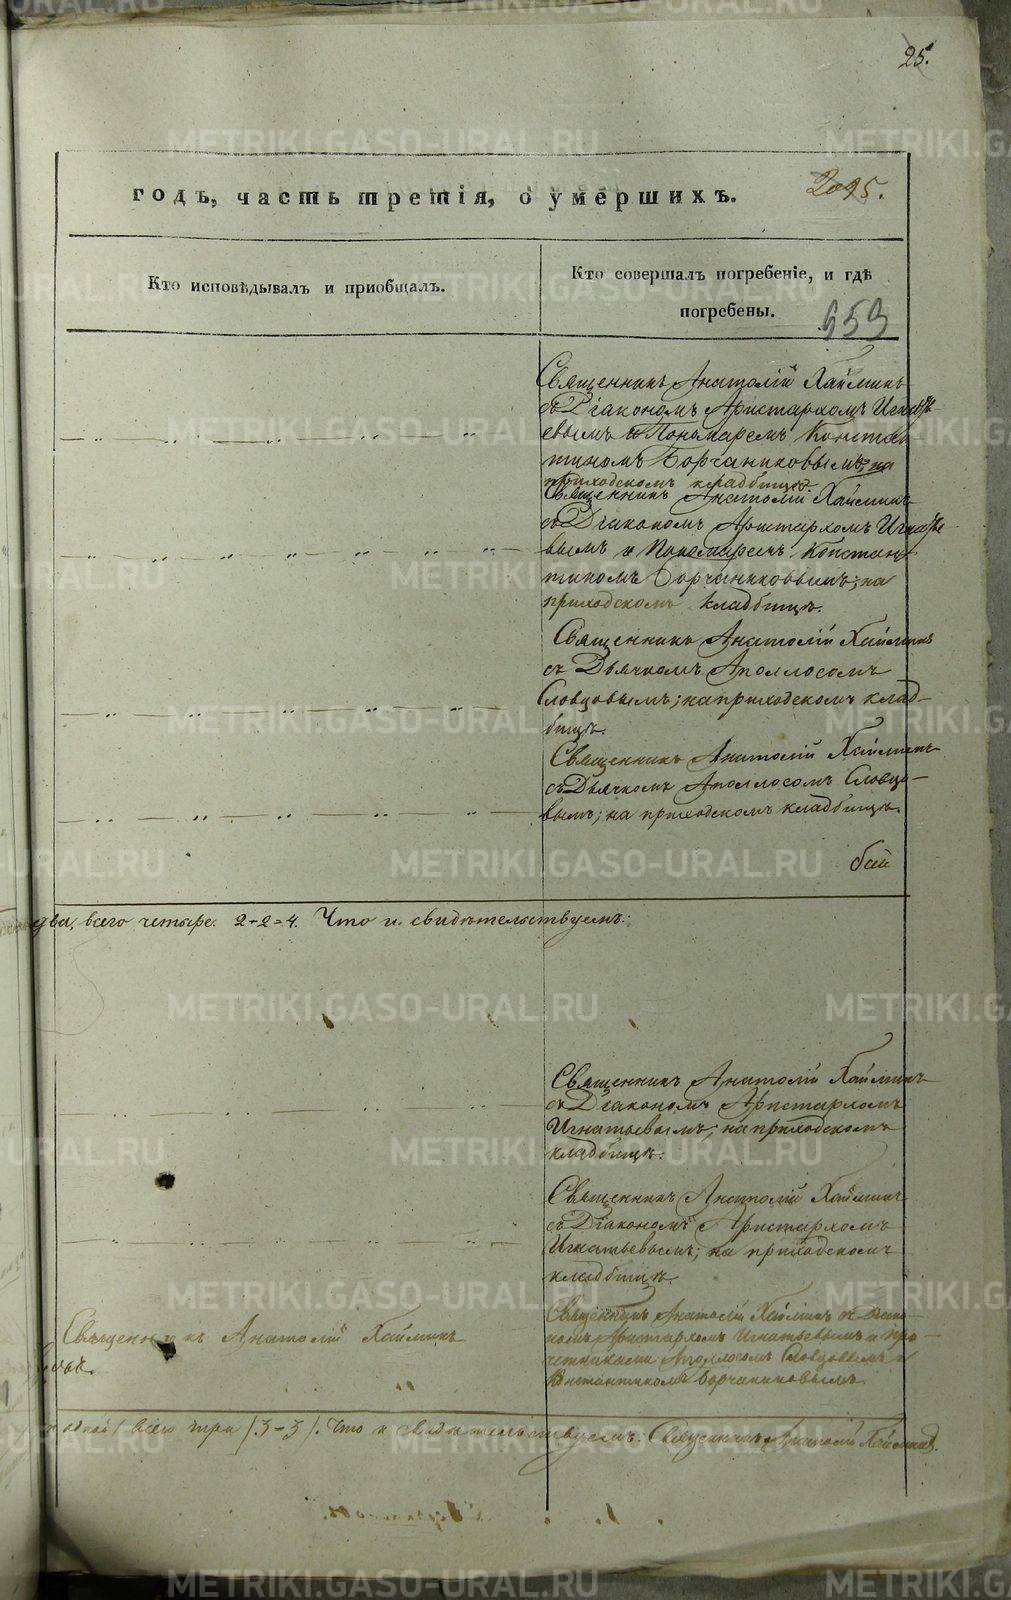 25.
годъ, часть третія, о умершихъ.
2095.
Кто исповѣдывалъ и пріобщалъ.
Кто совершалъ погребеніе, и гдѣ
погребены.
653
Священникъ Анатолій Хайминъ
съ Діакономъ Аристархомъ Игнатье-
евымъ и Пономаремъ Констан-
тиномъ Борчаниновымъ, на
приходскомъ кладбищѣ.
Священникъ Анатолій Хайминъ
съ Діакономъ Аристархомъ Игнатье-
вымъ и Пономаремъ Констан-
тиномъ Борчаниновымъ; на
приходскомъ кладбищѣ.
Священникъ Анатолій Хайминъ
съ Дьячкомъ Аполлосомъ
Словцовымъ; на приходскомъ клад-
бищѣ.
Священникъ Анатолій Хайминъ
съ Дьячкомъ Аполлосомъ Словцо-
вымъ; на приходскомъ кладбищѣ.
два, всего четыре. 2-2=4. Что и свидѣтельствуемъ:
Священникъ Анатолій Хайминъ
съ Діакономъ Аристархомъ
Игнатьевымъ; на приходскомъ
кладбищѣ.
Священникъ Анатолій Хайминъ
съ Діакономъ Аристархомъ
Игнатьевымъ; на приходскомъ
кладбищѣ.
Священникъ Анатолій Хайминъ
Священникъ Анатолій Хайминъ съ Діако-
номъ Аристархомъ Игнатьевымъ и при-
четниками Аполлосомъ Словцовымъ и
Константиномъ Борчаниновымъ.
всего три (3-3). Что и свидѣтельствуемъ: Священникъ Анатолій Хайминъ.
METRIKI.GASO-URAL.RU